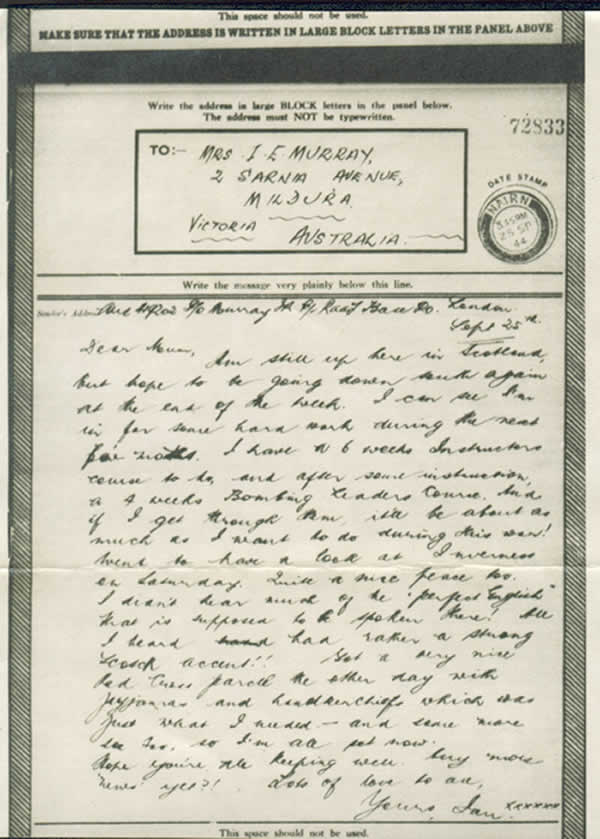 This space should not be used.
MAKE SURE THAT THE ADDRESS IS WRITTEN IN LARGE BLOCK LETTERS IN THE PANEL ABOVE
Write the address in large BLOCK letters in the panel below.
The address must NOT be typewritten.
72833
TO:- MRS I E MURRAY,
2 SARNIA AVENUE,
MILDURA
VICTORIA
AUSTRALIA.
DATE STAMP
NAIRN
25 SP
44
Write the message very plainly below this line.
Sender's Address Murray Base P.O. London
Sept 25th
Dear Mum, Am still up here in Scotland,
but hope to be going down south again
at the end of the week. I can see I'm
in for some hard work during the next
few months. I have a 6 weeks Instructors
course to do, and after some instruction,
a 4 weeks Bombing Leaders Course. And
if I get through them, it'll be about as
much as I want to do during this war!
Went to have a look at Inverness
on Saturday. Quite a nice peace too.
I didn't hear much of the "perfect English"
that is supposed to be spoken there! All
I heard had rather a strong
Scotch accent!! Got a very nice
Red Cross parcel the other day with
pyjamas and handkerchiefs which was
just what I needed – and some more
too, so I'm all set now.
Hope you're all keeping well. Any more
'news' yet?! Lots of love to all,
Yours, Ian xxxxxx
This space should not be used.